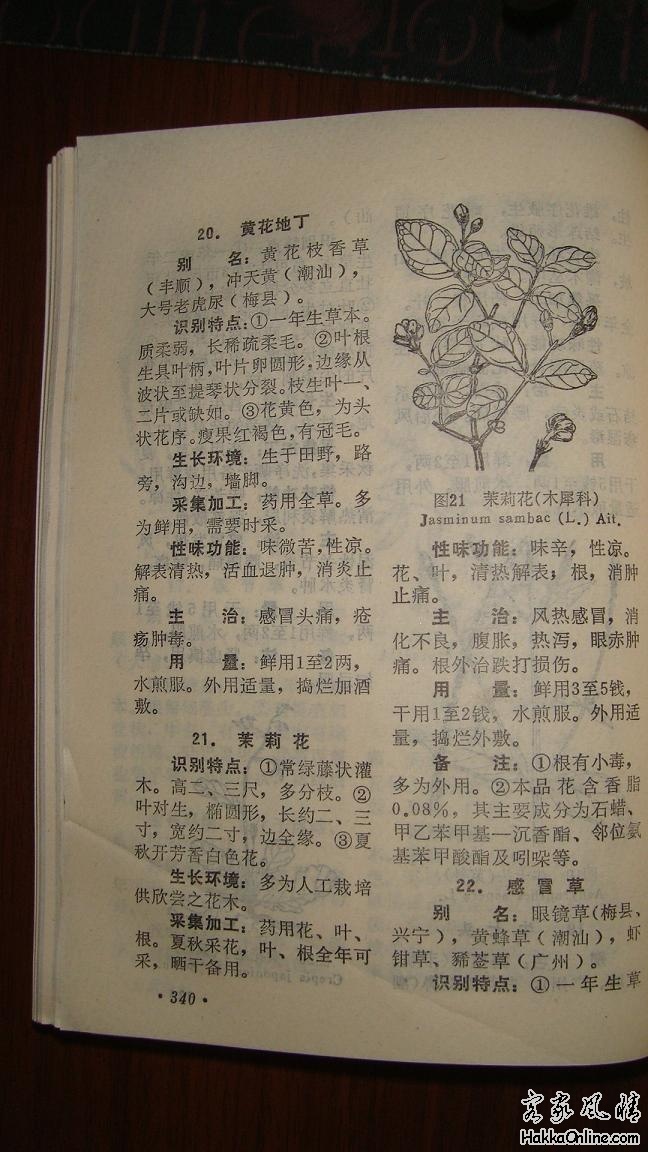 20. 黄花地丁
别 名：黄花枝香草
（丰顺），冲天黄（潮汕），
大号老虎尿（梅县）。
识别特点：①一年生草本。
质柔弱，长稀疏柔毛。②叶根
生具叶柄，叶片卵圆形，边缘从
波状至提琴状分裂。枝生叶一、
二片或缺如。③花黄色，为头
状花序。瘦果红褐色，有冠毛。
生长环境：生于田野，路
旁，沟边，墙脚。
采集加工：药用全草。多
为鲜用，需要时采。
性味功能：味微苦，性凉。
解表清热，活血退肿，消炎止
痛。
主 治：感冒头痛，疮
疡肿毒。
用 量：鲜用1至2两，
水煎服。外用适量，捣烂加酒
敷。
21. 茉莉花
识别特点：①常绿藤状灌
木。高二、三尺，多分枝。②
叶对生，椭圆形，长约二、三
寸，宽约二寸，边全缘。③夏
秋开芳香白色花。
生长环境：多为人工栽培
供欣尝之花木。
采集加工：药用花、叶、
根。夏秋采花，叶、根全年可
采，晒干备用。
·340·
图21 茉莉花（木犀科）
Jasminum sambac (L.) Ait.
性味功能：味辛，性凉。
花、叶，清热解表；根，消肿
止痛。
主 治：风热感冒，消
化不良，腹胀，热泻，眼赤肿
痛。根外治跌打损伤。
用 量：鲜用3至5钱，
干用1至2钱，水煎服。外用适
量，捣烂外敷。
备 注：①根有小毒，
多为外用。②本品花含香脂
0.08%，其主要成分为石蜡、
甲乙苯甲基—沉香酯、邻位氨
基苯甲酸酯及吲哚等。
22. 感冒草
别 名：眼镜草（梅县、
兴宁），黄蜂草（潮汕），虾
钳草、豨莶草（广州）。
识别特点：①一年生草
客家风情
HakkaOnline.com